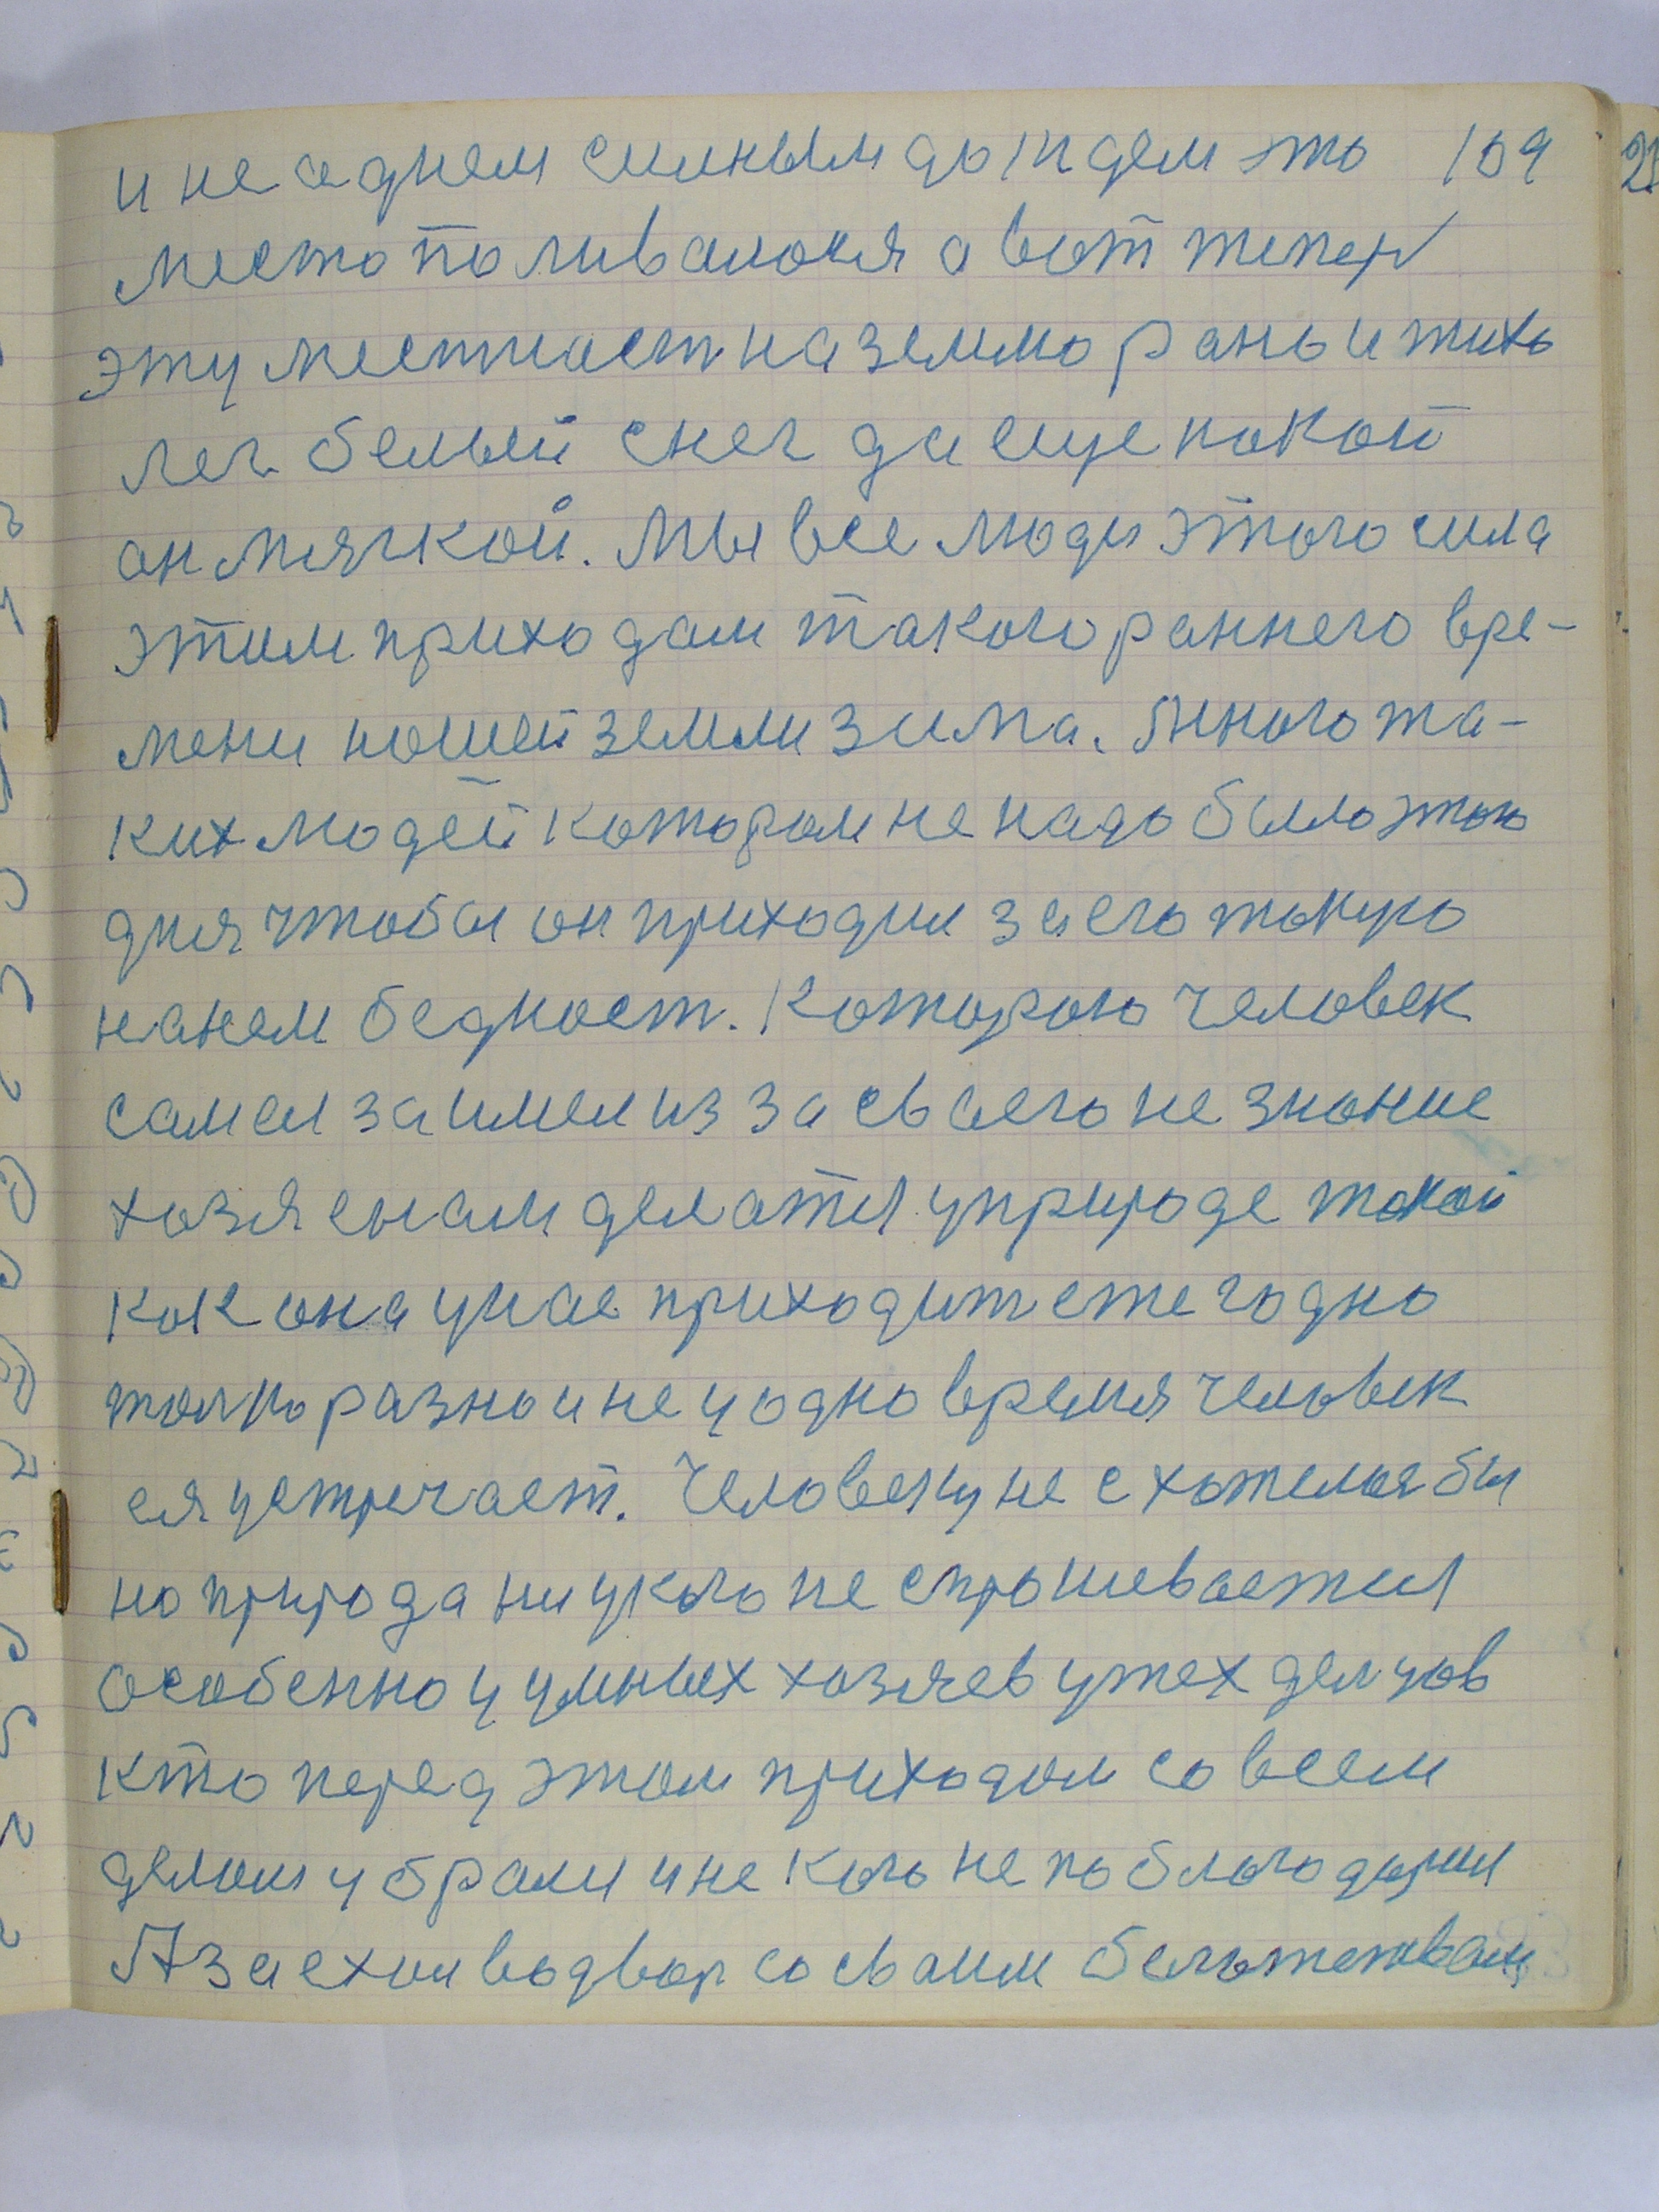 и не однем силным дождем это 109
место поливалося а вот тепер
эту местност на землю рано и тихо
лег белый снег да еще какой
он мягкой. Мы все люди этого села
этим приходам такого раннего вре-
мени нашей земли зима. Много та-
ких людей котором не надо было этого
дня чтобы он приходил за его такую
на нем бедност. Которою человек
самем заимел из за своего не знание
хозяенам делатся у природе такой
как она у нас приходит ежегодно
толко разно и не у одно время человек
ея устречает. Человеку не схотелося бы
но природа ни у кого не спрашивается
особенно у умных хозяев у тех делцов
кто перед этом приходом со всем
делом убрали и не кого не поблагодарил
А заехал во двор со своим